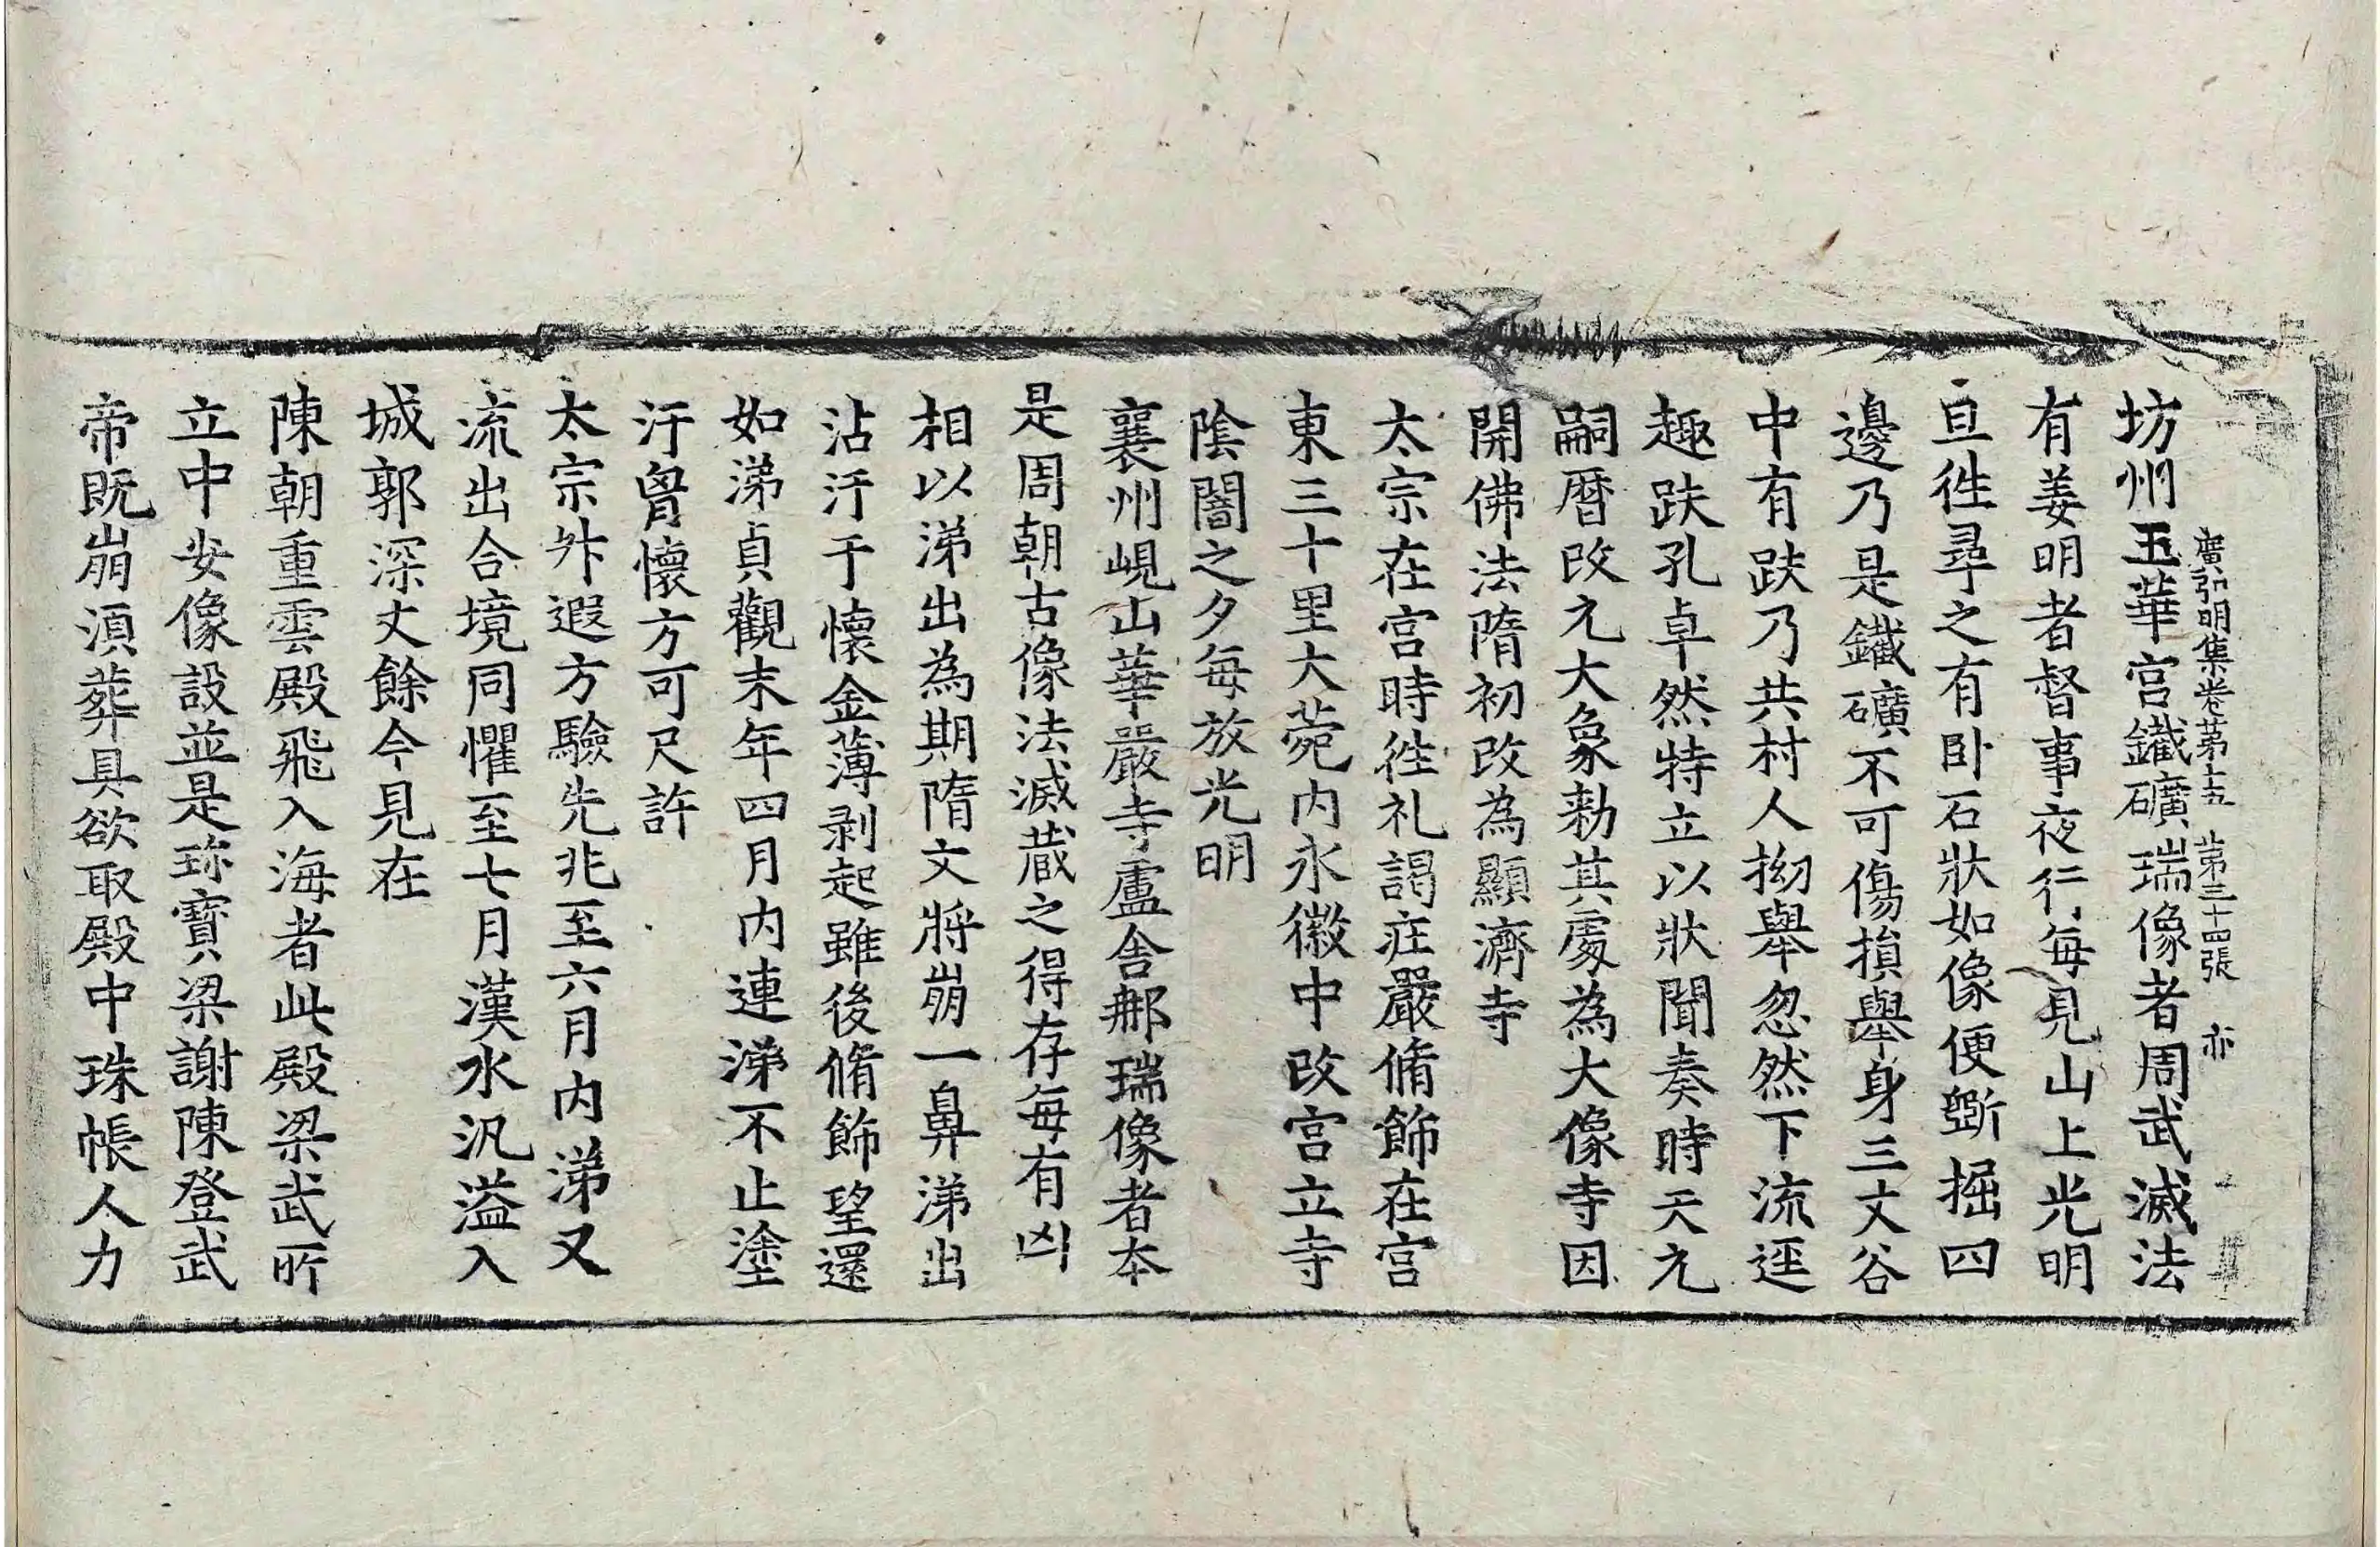 廣弘明集卷苐十五 苐三十四張 亦
坊州玉華宮鐵礦瑞像者周武滅法
有姜明者督事夜行每見山上光明
旦徃尋之有卧石狀如像便斵掘四
邊乃是鐵礦不可傷損舉身三丈谷
中有趺乃共村人拗舉忽然下流逕
趣趺孔卓然特立以狀聞奏時天元
嗣曆改元大象勑其處為大像寺因
開佛法隋初改為顯濟寺
太宗在宮時徃礼謁庄嚴脩飾在宮
東三十里大菀內永徽中改宮立寺
陰闇之夕每放光明
襄州峴山華嚴寺盧舍那瑞像者本
是周朝古像法滅蔵之得存每有凶
相以涕出為期隋文將崩一鼻涕出
沾汙于懷金薄剥起雖後脩飾望還
如涕貞觀末年四月內連涕不止塗
汙胷懷方可尺許
太宗升遐方驗先兆至六月內涕又
流出合境同懼至七月漢水汎溢入
城郭深丈餘今見在
陳朝重雲殿飛入海者此殿梁武所
立中安像設並是珎寶梁謝陳登武
帝既崩湏葬具欲取殿中珠帳人力